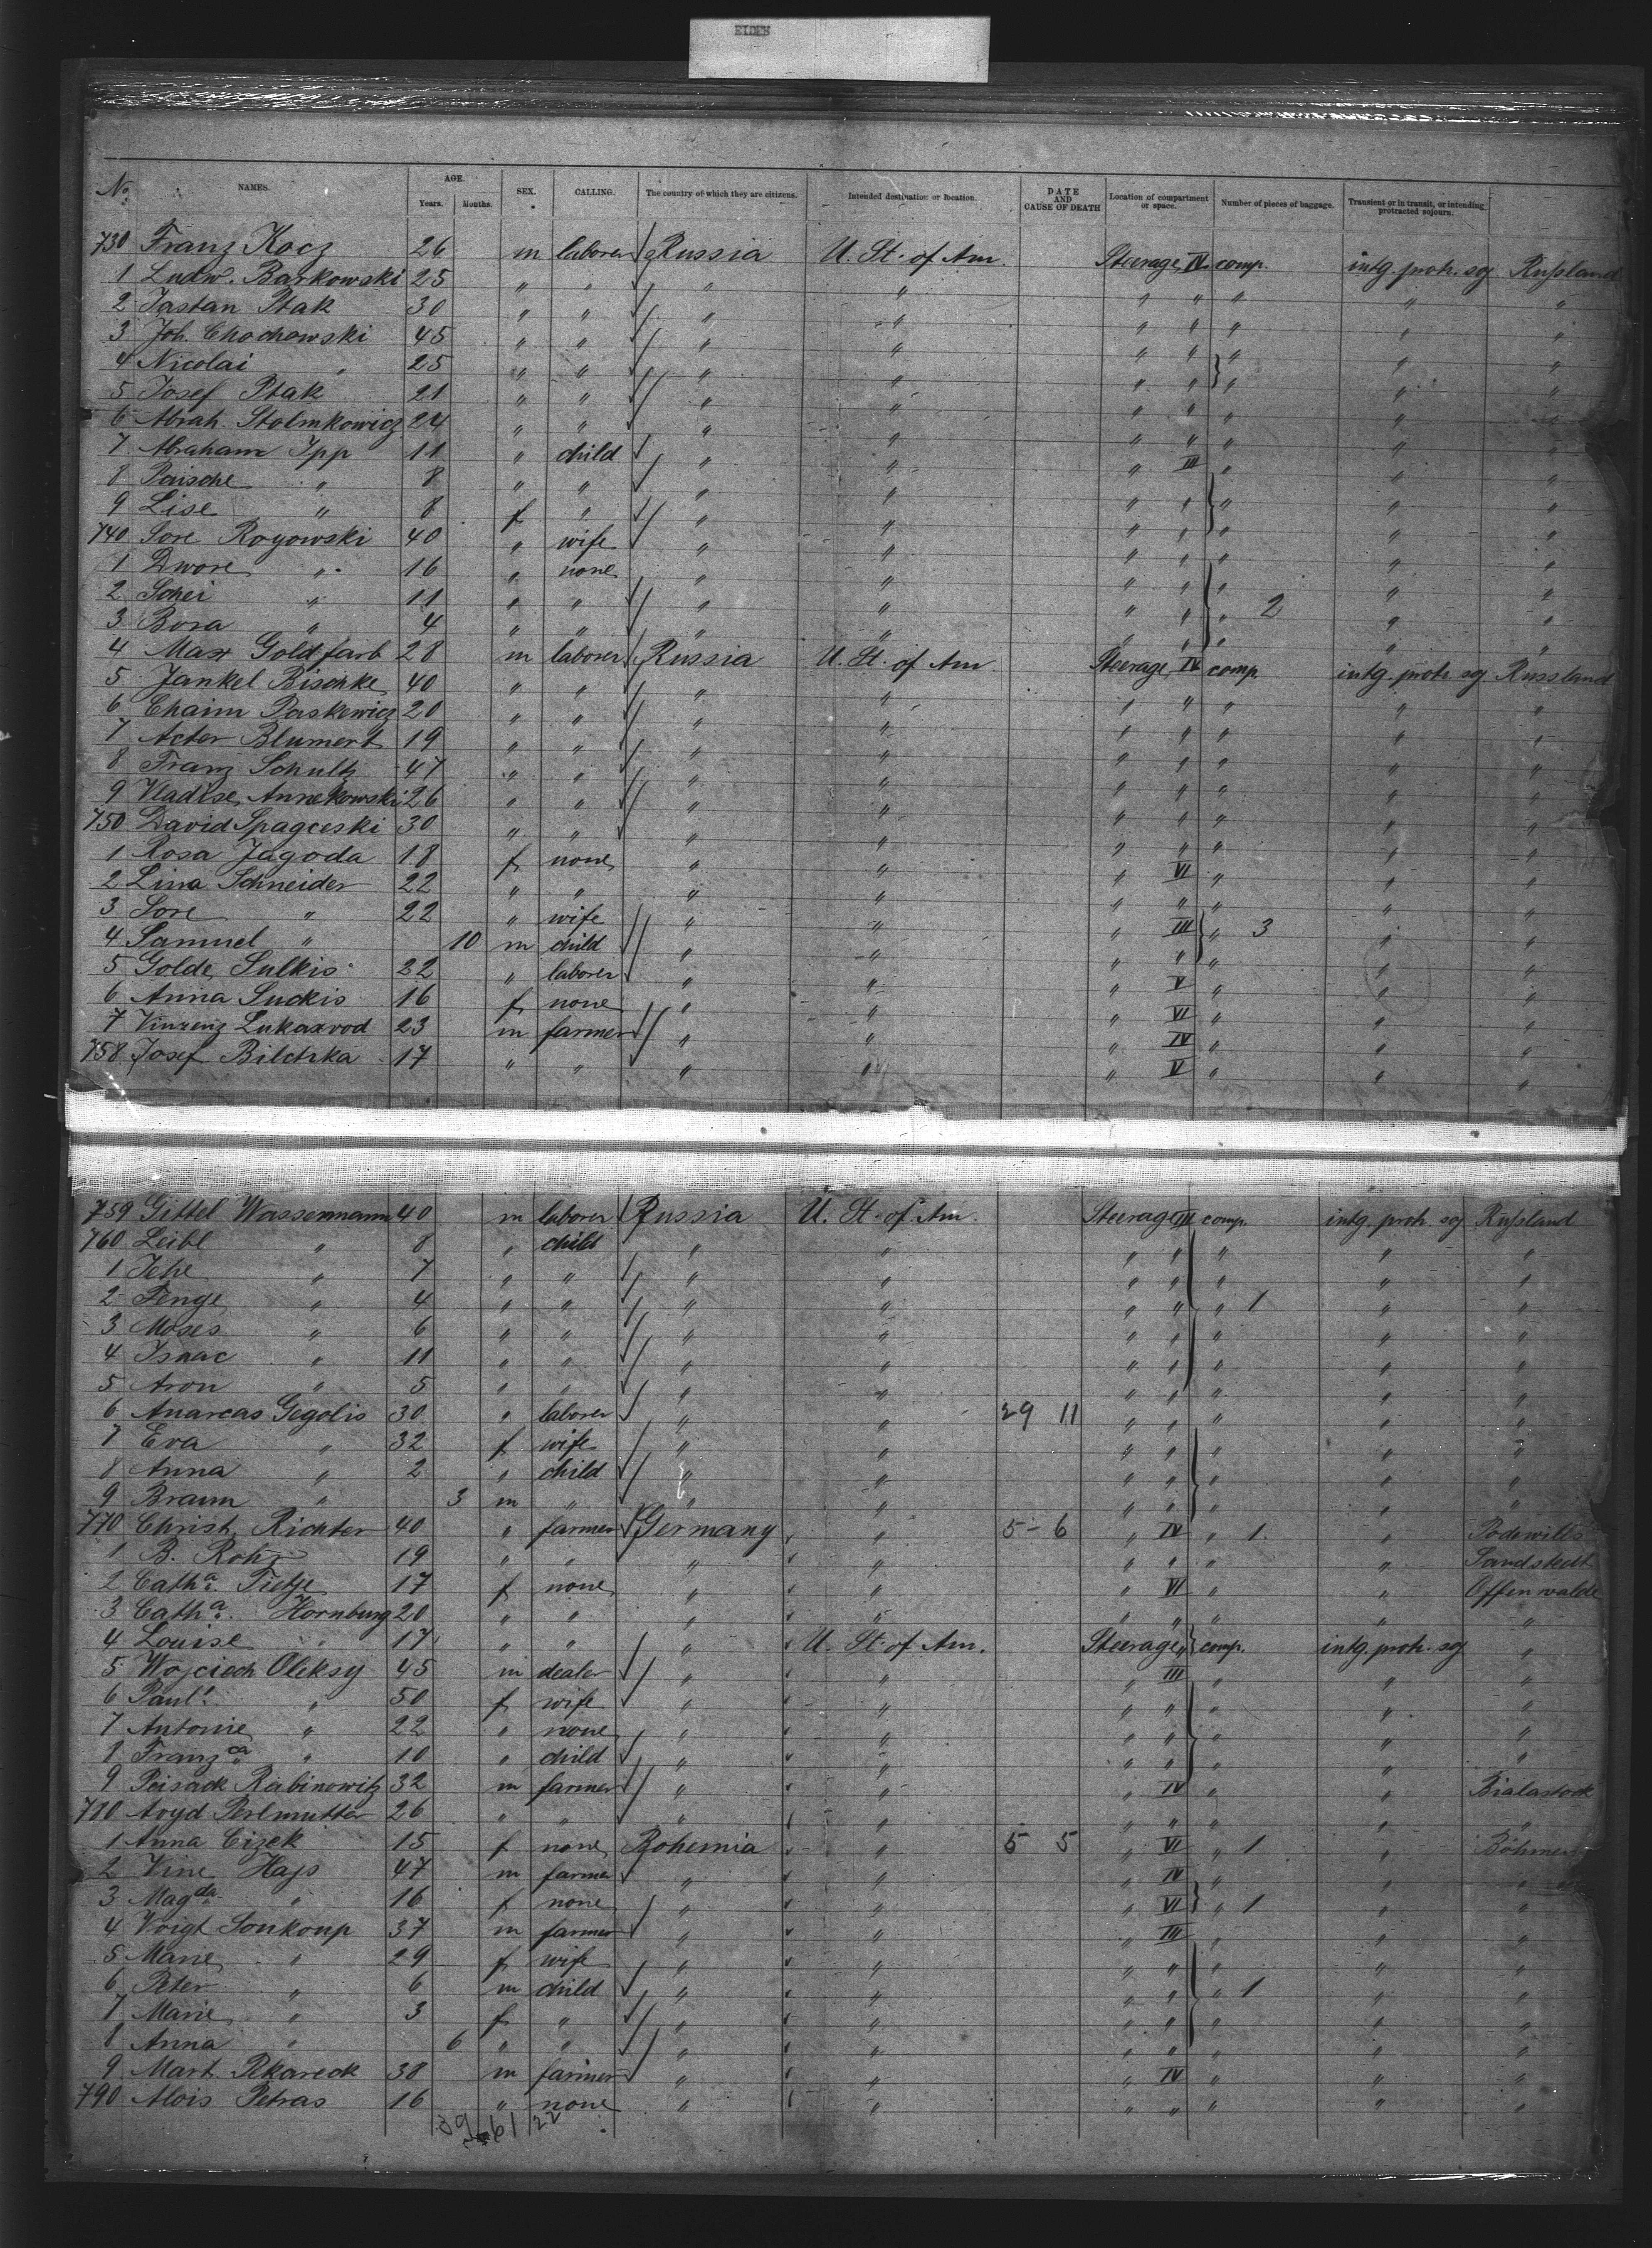 EIDEM
No. NAMES. AGE. Years. Months. SEX. CALLING. The country of which they are citizens. Intended destination or location. DATE AND CAUSE OF DEATH Location of compartment or space. Number of pieces of baggage. Transient or in transit, or intending protracted sojourn.
730 Franz Kocz 26 m laborer Russia U. St. of Am. Steerage IV comp. intg. protr. soj Rußland
1 Ludw. Barkowski 25 " " " " " " " " "
2 Tastan Ptak 30 " " " " " " " " "
3 Joh. Chochowski 45 " " " " " " " " "
4 Nicolai " 25 " " " " " " " " "
5 Josef Ptak 21 " " " " " " " " "
6 Abrah. Stolmkowicz 24 " " " " " " " " "
7 Abraham Ipp 11 " child " " " III " " "
8 Paische " 8 " " " " " " " " "
9 Lise " 8 f " " " " " " " "
740 Sore Rogowski 40 " wife " " " " " " "
1 Dwore " 16 " none " " " " " " "
2 Schei " 11 " " " " " " " 2 " "
3 Bora " 4 " " " " " " " " "
4 Max Goldfarb 28 m laborer Russia U. St. of Am Steerage IV comp. intg. protr. soj Russland
5 Jankel Bischke 40 " " " " " " " " "
6 Chaim Paskewicz 20 " " " " " " " " "
7 Acter Blumert 19 " " " " " " " " "
8 Franz Schultz 47 " " " " " " " " "
9 Vladise Annekowski 26 " " " " " " " " "
750 David Spagceski 30 " " " " " " " " "
1 Rosa Jagoda 18 f none " " " VI " " "
2 Lina Schneider 22 " " " " " " " " "
3 Sore " 22 " wife " " " III " 3 " "
4 Samuel " 10 m child " " " " " " "
5 Golde Sulkis 22 " laborer " " " V " " "
6 Anna Suckis 16 f none " " " VI " " "
7 Vinzenz Lukaxvod 23 m farmer " " " IV " " "
758 Josef Bilchka 17 " " " " " V " " "
759 Gittel Wassermann 40 m laborer Russia U. St. of Am. Steerage III comp. intg. protr. soj Rußland
760 Leibl " 8 " child " " " " " " "
1 Jehe " 7 " " " " " " " " "
2 Fenge " 4 " " " " " " " 1 " "
3 Moses " 6 " " " " " " " " "
4 Isaac " 11 " " " " " " " " "
5 Aron " 5 " " " " " " " " "
6 Anarcas Gegolis 30 " laborer " " 29 11 " " " " "
7 Eva " 32 f wife " " " " " " "
8 Anna " 2 " child " " " " " " "
9 Braum " 3 m " " " " " " " "
770 Christ. Richter 40 " farmer Germany " 5-6 " IV " 1 " Podewills
1 B. Rohr 19 " " " " " " " " Sandstedt
2 Catha. Tietje 17 f none " " " VI " " Offenwalde
3 Catha. Hornburg 20 " " " " " " " " "
4 Louise " 17 " " " U. St. of Am. Steerage " comp. intg. protr. soj "
5 Wojciech Oleksy 45 m dealer " " " III " " "
6 Paul. " 50 f wife " " " " " " "
7 Antonie " 22 " none " " " " " " "
8 Franzca " 10 " child " " " " " " "
9 Peisack Rabinowitz 32 m farmer " " " IV " " Bialastock
780 Avyd Perlmutter 26 " " " " " " " " "
1 Anna Cizek 15 f none Bohemia " 5 5 " VI " 1 " Böhmen
2 Vine Hajs 47 m farmer " " " IV " " "
3 Magda. " 16 f none " " " VI " 1 " "
4 Voigt Soukoup 37 m farmer " " " III " " "
5 Marie " 29 f wife " " " " " " "
6 Peter " 6 m child " " " " " 1 " "
7 Marie " 3 f " " " " " " " "
8 Anna " 6 " " " " " " " " "
9 Mart. Pekareck 38 m farmer " " " IV " " "
790 Alois Petras 16 " none " " " " " " "
39 61 22